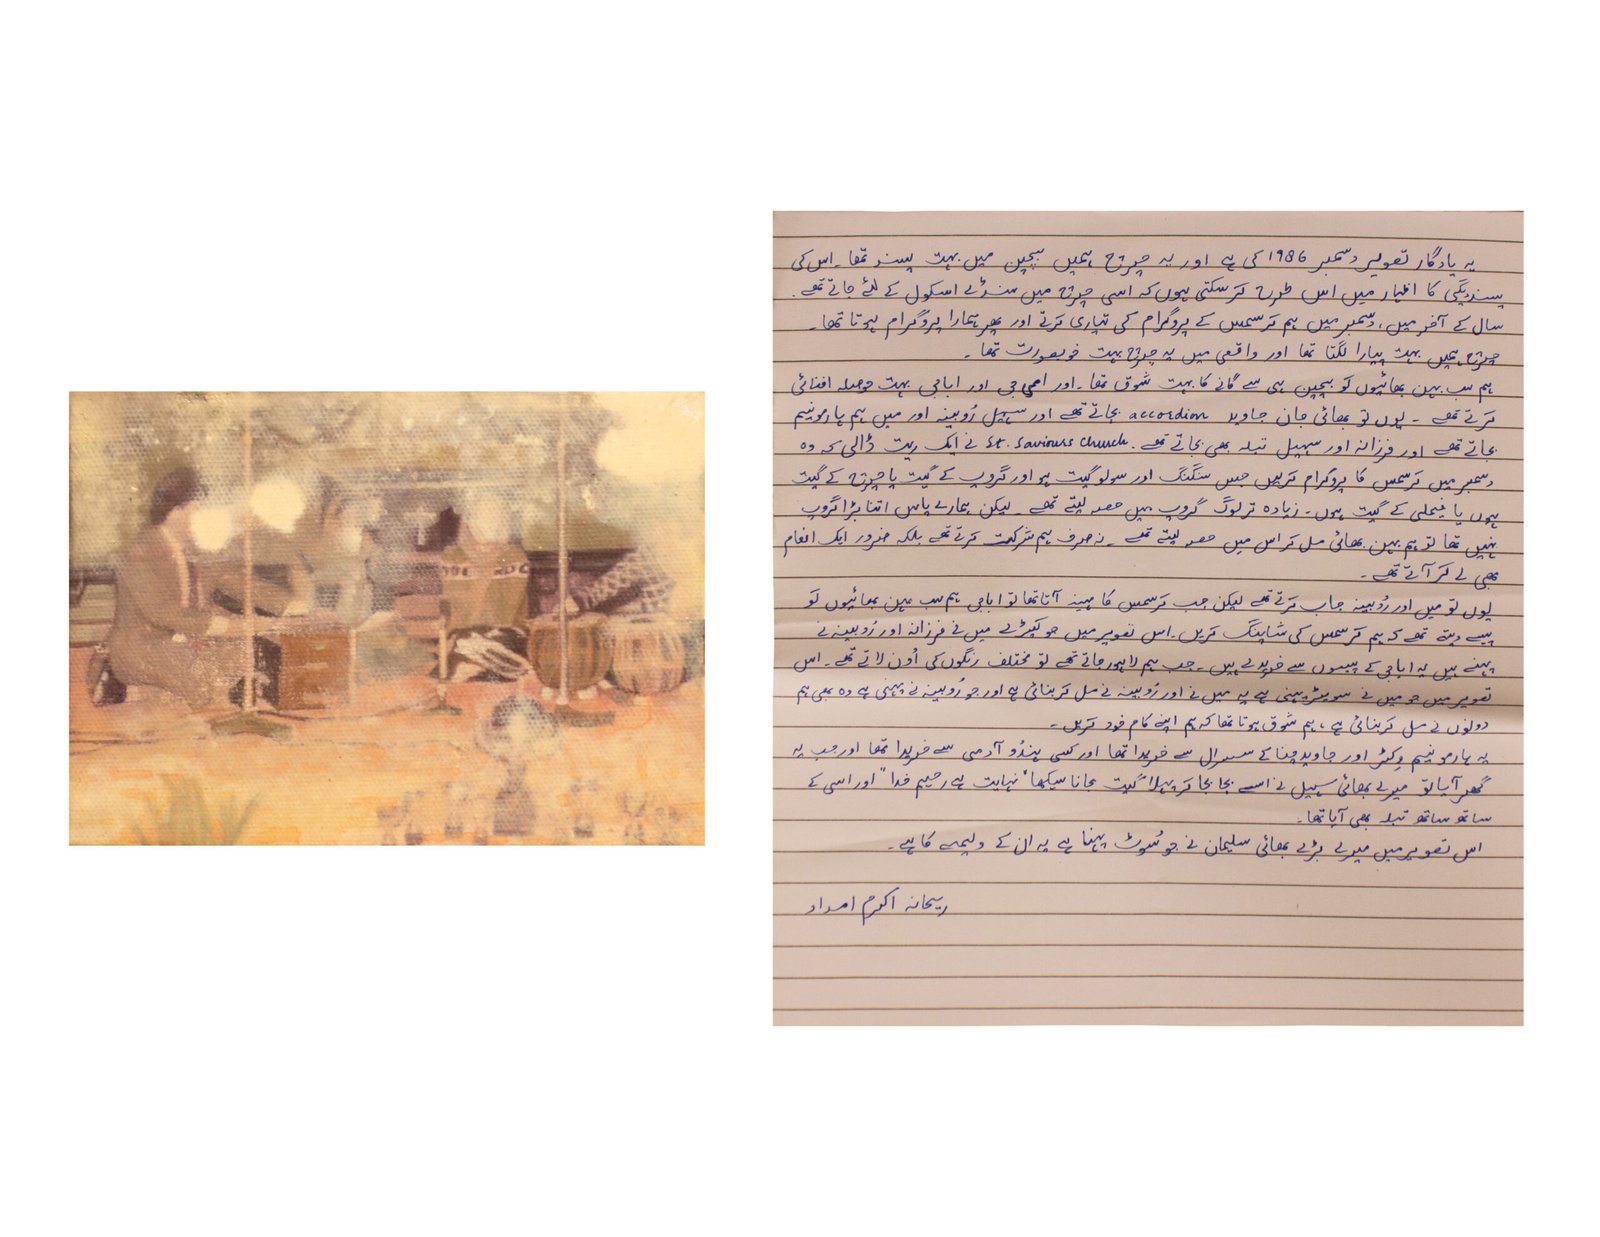 یہ یادگار تصویر دسمبر 1986 کی ہے اور یہ چرچ ہمیں بچپن میں بہت پسند تھا۔ اس کی
پسندیدگی کا اظہار میں اس طرح کر سکتی ہوں کہ اسی چرچ میں سنڈے اسکول کے لئے جاتے تھے۔
سال کے آخر میں، دسمبر میں ہم کرسمس کے پروگرام کی تیاری کرتے اور پھر ہمارا پروگرام ہوتا تھا۔
چرچ ہمیں بہت پیارا لگتا تھا اور واقعی میں یہ چرچ بہت خوبصورت تھا۔
ہم سب بہن بھائیوں کو بچپن ہی سے گانے کا بہت شوق تھا۔ اور امی جی اور اباجی بہت حوصلہ افزائی
کرتے تھے۔ یوں تو بھائی جان جاوید accordion بجاتے تھے اور سہیل روبینہ اور میں ہم ہارمونیم
بجاتے تھے اور فرزانہ اور سہیل تبلہ بھی بجاتے تھے۔ St. Saviours Church نے ایک ریت ڈالی کہ وہ
دسمبر میں کرسمس کا پروگرام کریں جس سنگنگ اور سولو گیت ہو اور گروپ کے گیت یا چرچ کے گیت
ہوں یا فیملی کے گیت ہوں۔ زیادہ تر لوگ گروپ میں حصہ لیتے تھے۔ لیکن ہمارے پاس اتنا بڑا گروپ
نہیں تھا تو ہم بہن بھائی مل کر اس میں حصہ لیتے تھے۔ نہ صرف ہم شرکت کرتے تھے بلکہ ضرور ایک انعام
بھی لے کر آتے تھے۔
یوں تو میں اور روبینہ جاب کرتے تھے لیکن جب کرسمس کا مہینہ آتا تھا تو اباجی ہم سب بہن بھائیوں کو
پیسے دیتے تھے کہ ہم کرسمس کی شاپنگ کریں۔ اس تصویر میں جو کپڑے میں نے فرزانہ اور روبینہ نے
پہنے ہیں یہ اباجی کے پیسوں سے خریدے ہیں۔ جب ہم لاہور جاتے تھے تو مختلف رنگوں کی اُون لاتے تھے۔ اس
تصویر میں جو میں نے سویٹر پہنی ہے یہ میں نے اور رُوبینہ نے مل کر بنائی ہے اور جو رُوبینہ نے پہنی ہے وہ بھی ہم
دونوں نے مل کر بنائی ہے، ہم شوق ہوتا تھا کہ ہم اپنے کام خود کریں۔
یہ ہارمونیم وکٹر اور جاوید چنا کے سسرال سے خریدا تھا اور کسی ہندُو آدمی سے خریدا تھا اور جب یہ
گھر آیا تو میرے بھائی سہیل نے اسے بجا بجا کر پہلا گیت بجانا سیکھا "نہایت ہے رحیم خدا" اور اسی کے
ساتھ ساتھ تبلہ بھی آیا تھا۔
اس تصویر میں میرے بڑے بھائی سلیمان نے جو سُوٹ پہنا ہے یہ ان کے ولیمے کا ہے۔
ریحانہ اکرم امداد